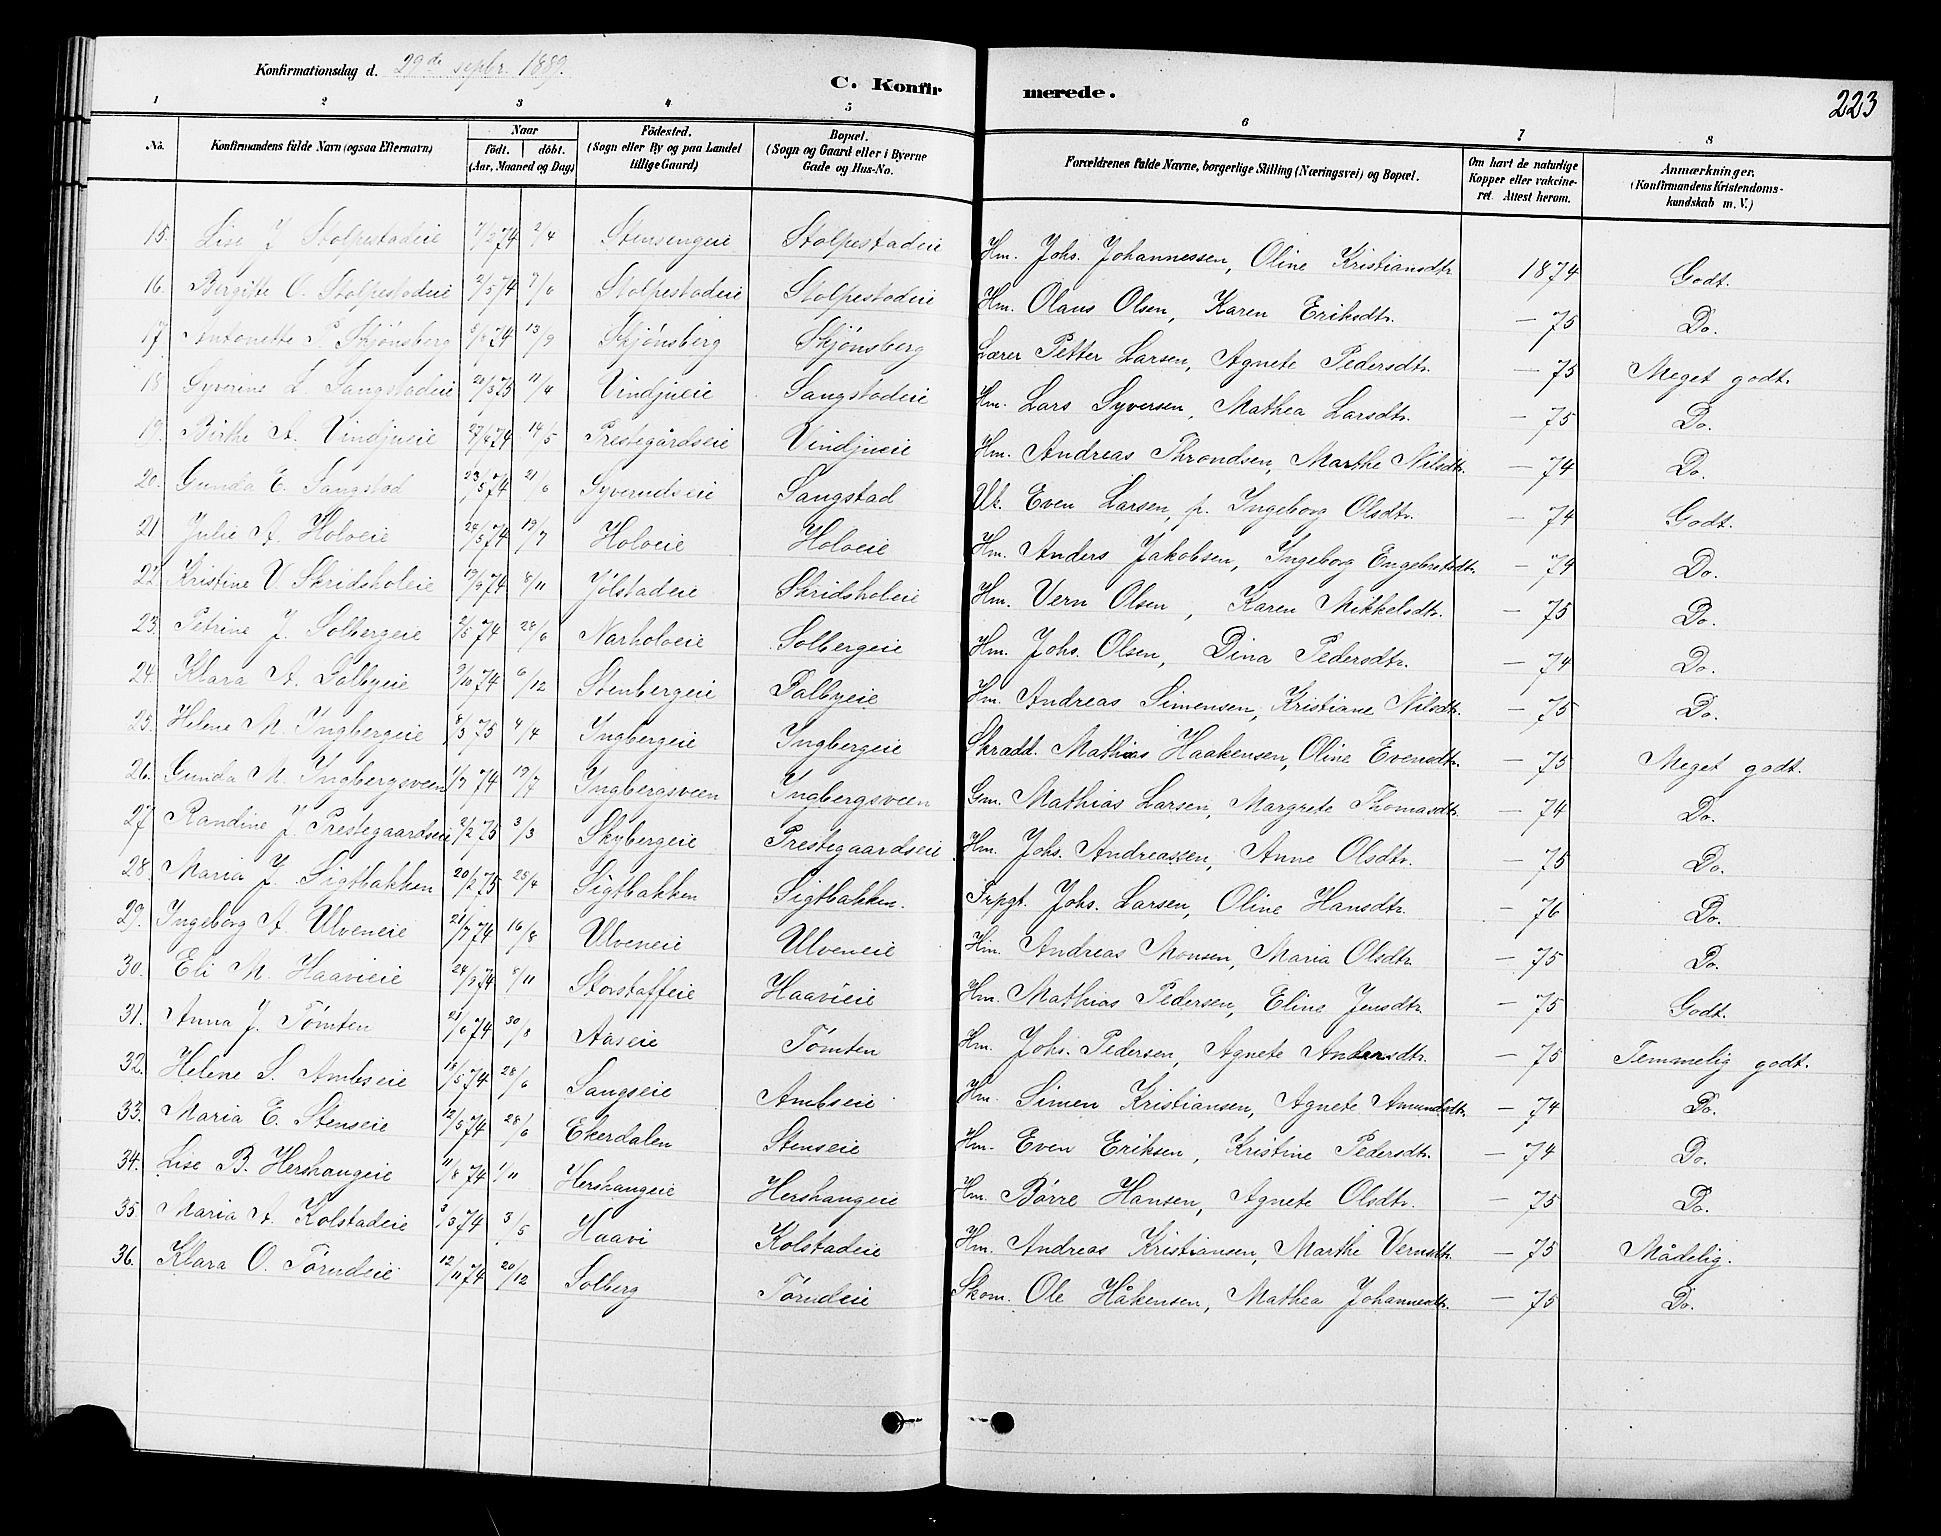 Konfirmationsdag d. 29de septbr. 1889.
C. Konfirmerede.
223
1 2 3 4 5 6 7 8
No. Konfirmandens fulde Navn (ogsaa Efternavn) Naar födt. döbt. (Aar, Maaned og Dag) Födested. (Sogn eller By og paa Landet tillige Gaard) Bopæl. (Sogn og Gaard eller i Byerne Gade og Hus-No. Forældrenes fulde Navne, borgerlige Stilling (Næringsvei) og Bopæl. Om havt de naturlige Kopper eller vakcineret. Attest herom. Anmærkninger. (Konfirmandens Kristendomskundskab m. V.)
15. Lise J. Stolpestadeie 7/2 74 2/4 Stensengeie Stolpestadeie Hm. Johs. Johannessen, Oline Kristiansdtr. 1874 Godt.
16. Bergitte O. Stolpestadeie 2/5 74 7/6 Stolpestadeie Stolpestadeie Hm. Olaus Olsen, Karen Eriksdtr. – 75 Do.
17. Antonette P. Skjönsberg 74 13/9 Skjönsberg Skjönsberg Lærer Petter Larsen, Agnete Pedersdtr. – 75 Meget godt.
18. Syverine L. Sangstadeie 20/3 75 11/4 Vindjueie Sangstadeie Hm. Lars Syversen, Mathea Larsdtr. – 75 Do.
19. Birthe A. Vindjueie 74 14/5 Prestegårdseie Vindjueie Hm. Andreas Throndsen, Marthe Nilsdtr. – 74 Do.
20. Gunda E. Sangstad 23/5 74 21/6 Syverudseie Sangstad Uk. Even Larsen, p. Ingeborg Olsdtr. – 74 Godt.
21. Julie A. Holoeie 24/5 74 19/7 Holoeie Holoeie Hm. Anders Jakobsen, Ingeborg Engebretsdtr. – 74 Do.
22. Kristine V. Skridsholeie 19/9 74 8/11 Jölstadeie Skridsholeie Hm. Vern Olsen, Karen Mikkelsdtr. – 75 Do.
23. Petrine J. Solbergeie 2/5 74 28/6 Narholoeie Solbergeie Hm. Johs. Olsen, Dina Pedersdtr. – 74 Do.
24. Klara A. Dalbyeie 9/10 74 6/12 Stenbergeie Dalbyeie Hm. Andreas Simensen, Kristiane Nilsdtr. – 75 Do.
25. Helene M. Ingbergeie 8/3 75 4/4 Ingbergeie Ingbergeie Skrædd. Mathias Haakensen, Oline Evensdtr. – 75 Meget godt.
26. Gunda M. Ingbergsveen 1/7 74 19/7 Ingbergsveen Ingbergsveen Gm. Mathias Larsen, Margrete Thomasdtr. – 74 Do.
27. Randine J. Prestegaardseie 2/2 75 3/3 Skybergeie Prestegaardseie Hm. Johs. Andreassen, Anne Olsdtr. – 75 Do.
28. Maria J. Sigtbakken 20/2 75 25/4 Sigtbakken Sigtbakken. Frpgt. Johs. Larsen, Oline Hansdtr. – 76 Do.
29. Ingeborg A. Ulveneie 21/7 74 16/8 Ulveneie Ulveneie Hm. Andreas Monsen, Maria Olsdtr. – 75 Do.
30. Eli M. Haavieie 24/9 74 8/11 Storstaffeie Haavieie Hm. Mathias Pedersen, Eline Jensdtr. – 75 Godt.
31. Anna J. Tömten 21/6 74 30/8 Aaseie Tömten Hm. Johs. Pedersen, Agnete Andersdtr. – 75 Temmelig godt.
32. Helene S. Ambseie 18/5 74 28/6 Sangseie Ambseie Hm. Simen Kristiansen, Agnete Amundsdtr. – 74 Do.
33. Maria E. Stenseie 12/5 74 28/6 Ekerdalen Stenseie Hm. Even Eriksen, Kristine Pedersdtr. – 74 Do.
34. Lise B. Hershaugeie 11/8 74 1/11 Hershaugeie Hershaugeie Hm. Børre Hansen, Agnete Olsdtr. – 75 Do.
35. Maria A. Kolstadeie 3/3 74 3/5 Haavi Kolstadeie Hm. Andreas Kristiansen, Marthe Vernsdtr. – 75 Mådelig.
36. Klara O. Törudeie 12/11 74 20/12 Solberg Törudeie Skom. Ole Håkensen, Mathea Johannesdtr. – 75 Do.